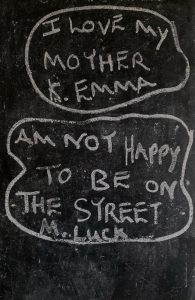 I LOVE My
MOTHER
K. EMMA
AM NOT HAPPY
TO BE ON
THE STREET
M. LUCK